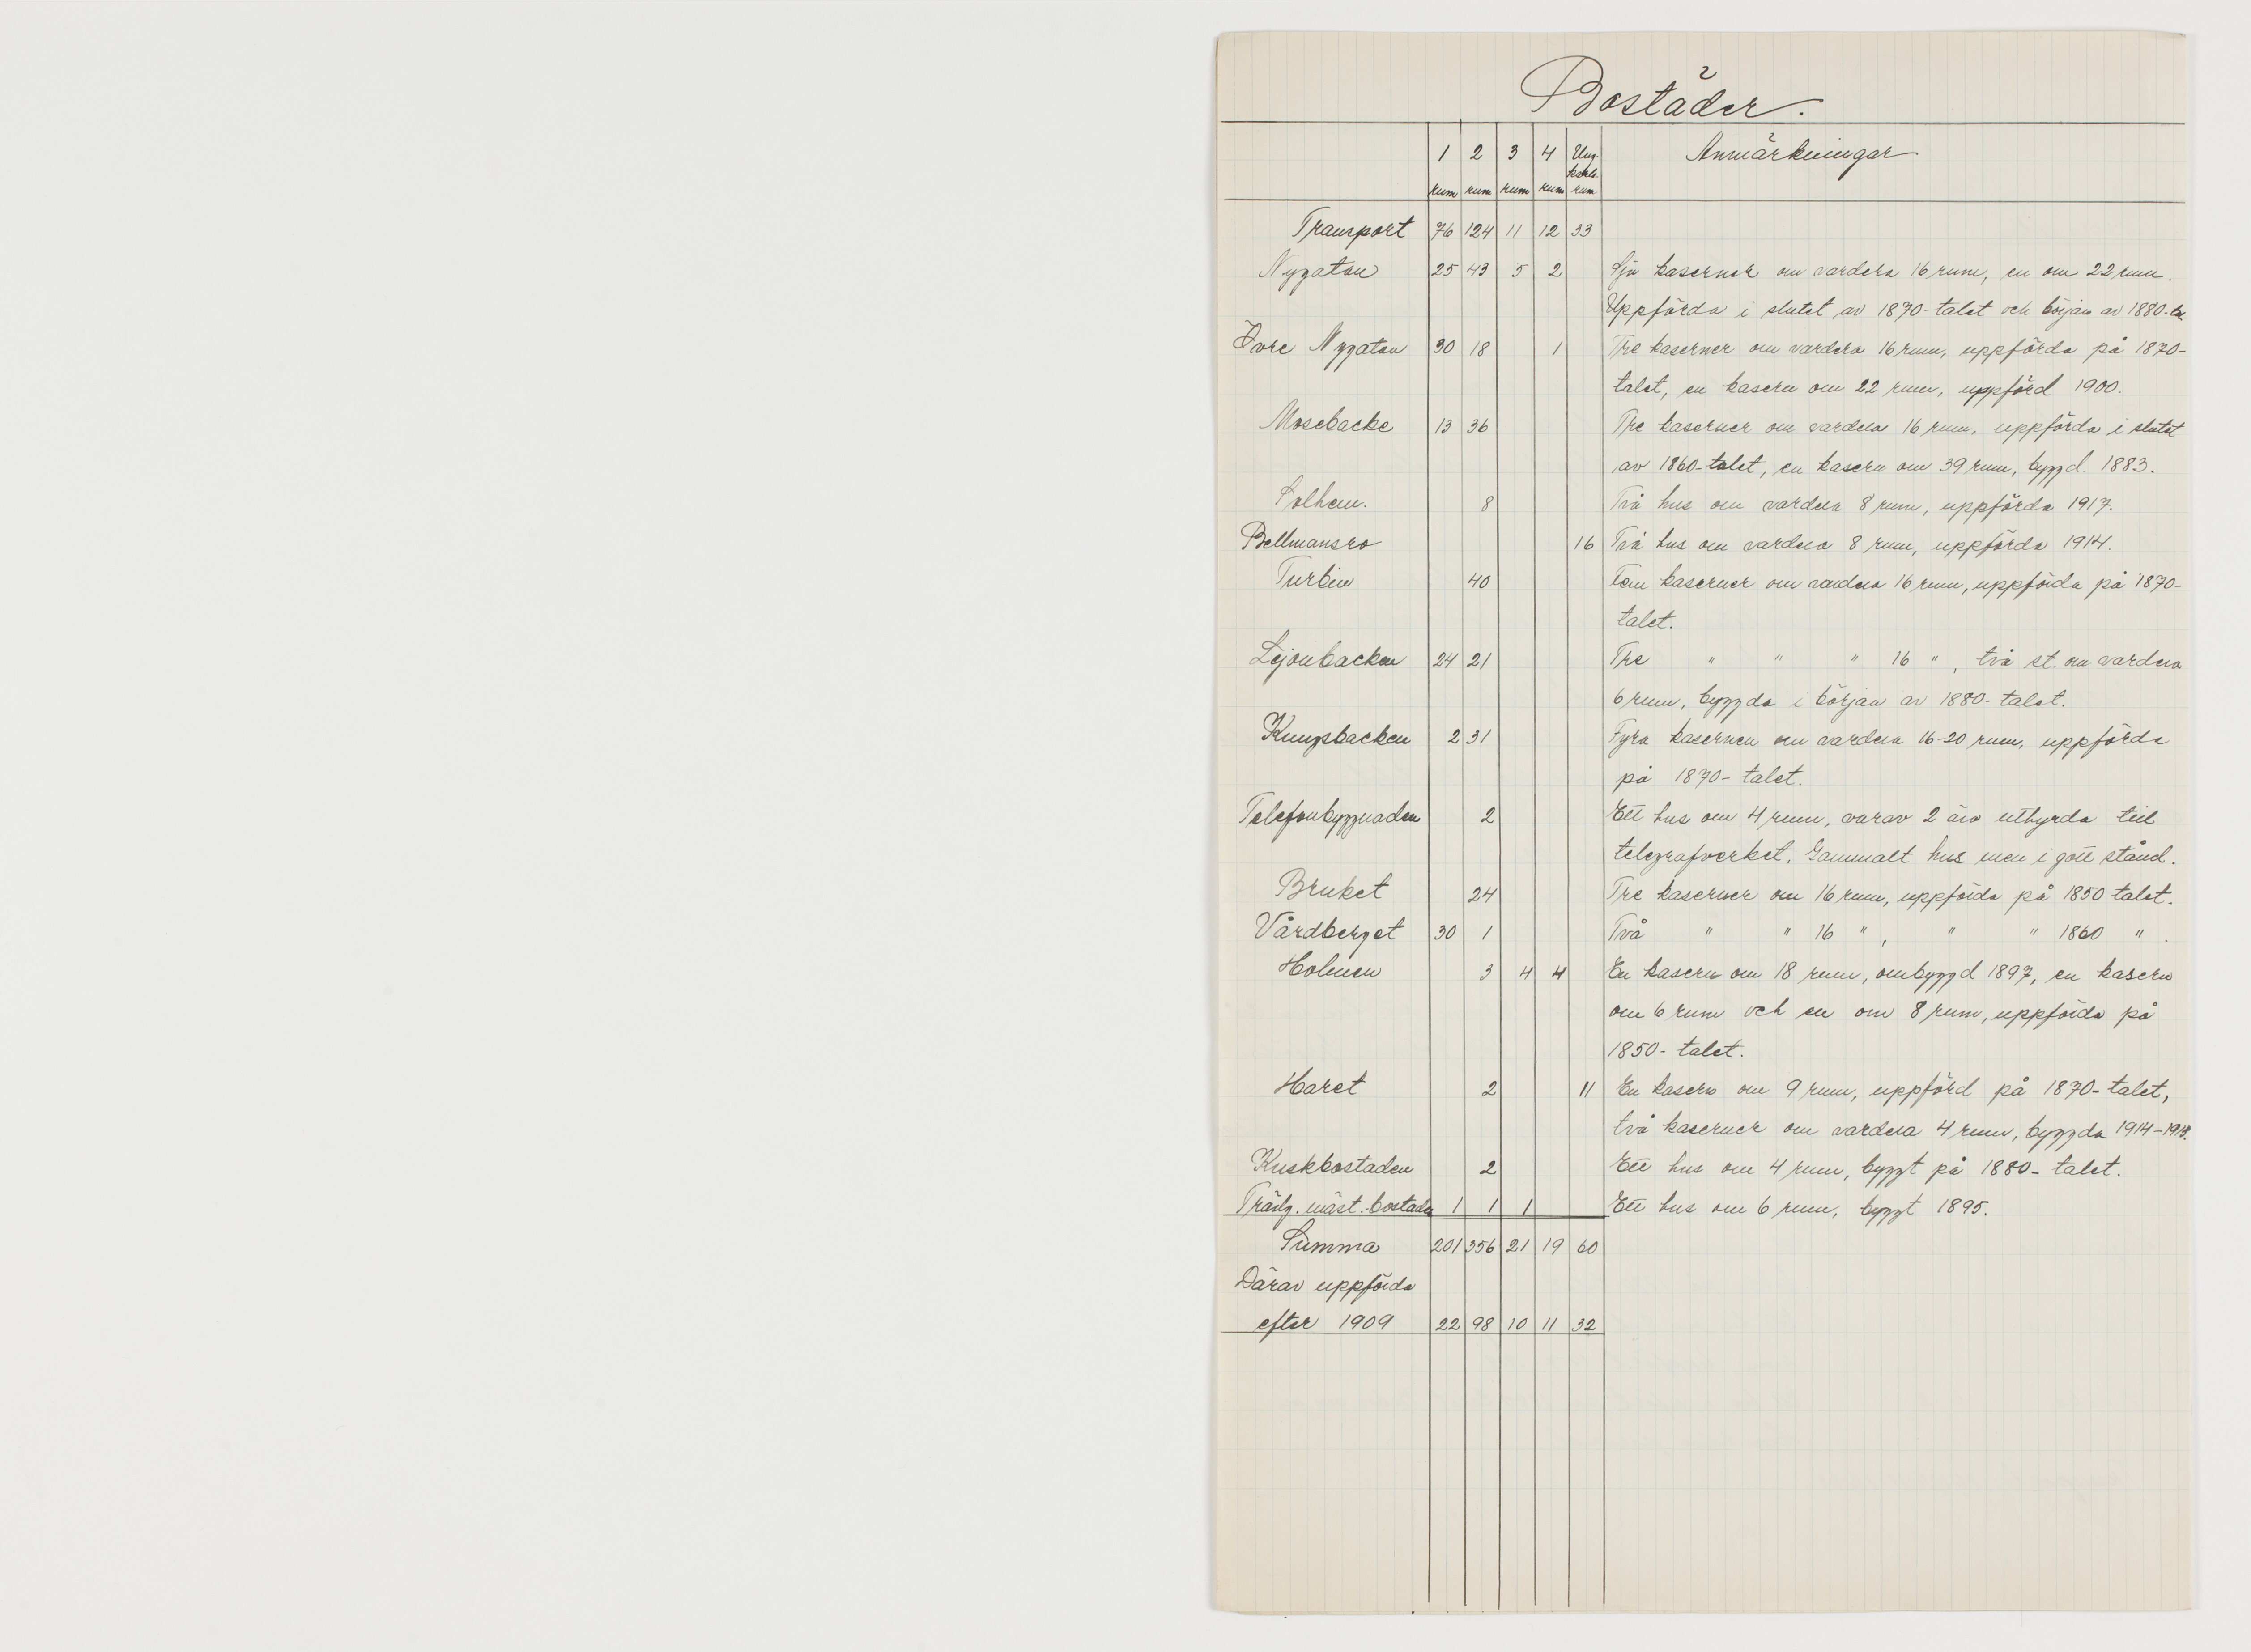 Bostäder.
1 2 3 4 Ung- Anmärkningar
karls-
rum rum rum rum rum
Transport 76 124 11 12 33
Nygatan 25 43 5 2 Sju kaserner om vardera 16 rum, en om 22 rum.
Uppförda i slutet av 1870-talet och början av 1880-tal
Övre Nygatan 30 18 1 Tre kaserner om vardera 16 rum, uppförda på 1870-
talet, en kasern om 22 rum, uppförd 1900.
Mosebacke 13 36 Tre kaserner om vardera 16 rum, uppförda i slutet
av 1860-talet, en kasern om 39 rum, byggd 1883.
Solhem. 8 Två hus om vardera 8 rum, uppförda 1917.
Bellmansro 16 Två hus om vardera 8 rum, uppförda 1914.
Turbin 40 Fem kaserner om vardera 16 rum, uppförda på 1870-
talet.
Lejonbacken 24 21 Tre " " " 16 ", två st. om vardera
6 rum, byggda i början av 1880-talet.
Kungsbacken 2 31 Fyra kaserner om vardera 16-20 rum, uppförda
på 1870-talet.
Telefonbyggnaden 2 Ett hus om 4 rum, varav 2 äro uthyrda till
telegrafverket. Gammalt hus men i gott stånd.
Bruket 24 Tre kaserner om 16 rum, uppförda på 1850 talet.
Vårdberget 30 1 Två " " 16 ", " " 1860 ".
Holmen 3 4 4 En kasern om 18 rum, ombyggd 1897, en kasern
om 6 rum och en om 8 rum, uppförda på
1850-talet.
Haret 2 11 En kasern om 9 rum, uppförd på 1870-talet,
två kaserner om vardera 4 rum, byggda 1914-
Kuskbostaden 2 Ett hus om 4 rum, byggt på 1880-talet.
Trädg. mäst.-bostaden 1 1 1 Ett hus om 6 rum, byggt 1895.
Summa 201 356 21 19 60
Därav uppförda
efter 1909 22 98 10 11 32